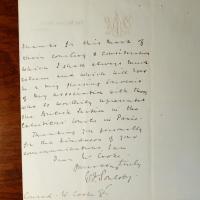 thanks for this mark of
your courtesy & consideration
which I shall always much
esteem and which will be
a very pleasing souvenir
of my association with those
who so worthily represented
the British Section in the
Exhibition in Paris.
Thanking you personally
for the kindness of your
communication, I am
Dear Mr Cooke
Yours very truly
Conrad W. Cooke Esq